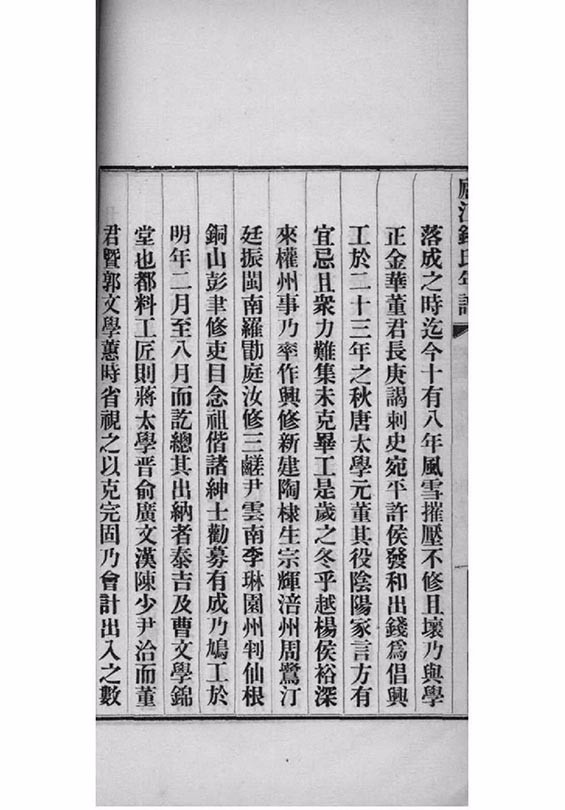 錢氏年譜
落成之時迄今十有八年風雪摧壓不修且壞乃與學
正金華董君長庚謁刺史宛平許侯發和出錢爲倡興
工於二十三年之秋唐太學元董其役陰陽家言方有
宜忌且衆力難集未克畢工是歲之冬乎越楊侯裕深
來權州事乃率作興修新建陶棣生宗輝涪州周鷺汀
廷振閩南羅勖庭汝修三鹺尹雲南李琳園州判仙根
銅山彭聿修吏目念祖偕諸紳士勸募有成乃鳩工於
明年二月至八月而訖總其出納者泰吉及曹文學錦
堂也都料工匠則蔣太學晋俞廣文漢陳少尹治而董
君暨郭文學蕙時省視之以克完固乃會計出入之數